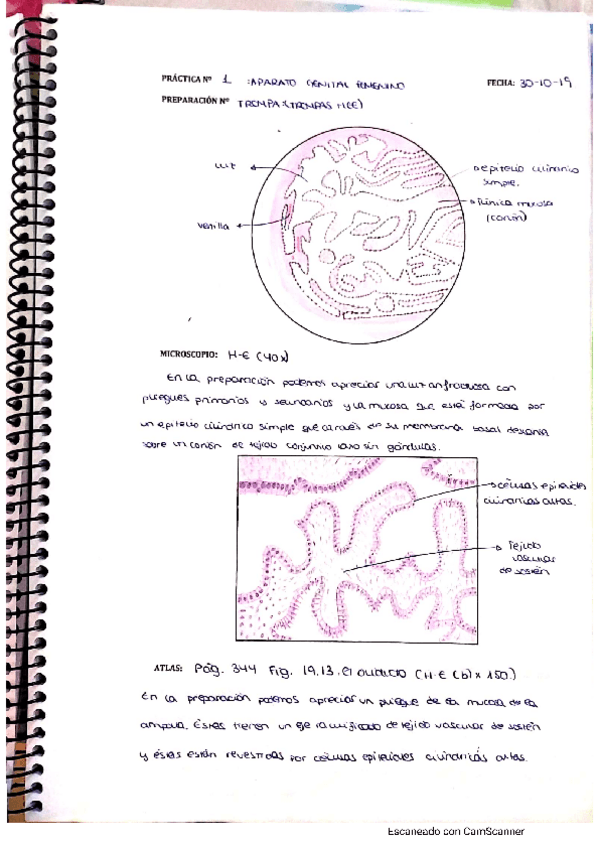 PRÁCTICA Nº 1 : APARATO GENITAL FEMENINO
FECHA: 30-10-19
PREPARACIÓN Nº TROMPA (TROMPAS H(E)
luz
epitelio cilíndrico
simple.
Túnica mucosa
(corión)
venilla
MICROSCOPIO: H-E (40x)
En la preparación podemos apreciar una luz anfractuosa con
pliegues primarios y secundarios y la mucosa que está formada por
un epitelio cilíndrico simple que a través de su membrana basal descansa
sobre un corión de tejido conjuntivo laxo sin glándulas.
células epiteliales
cilíndricas altas.
Tejido
vascular
de sostén
ATLAS: Pág. 344 Fig. 19.13. el oviducto (H-E (b) x 150)
En la preparación podemos apreciar un pliegue de la mucosa de la
ampolla. Éstos tienen un eje ramificado de tejido vascular de sostén
y éstas están revestidas por células epiteliales cilíndricas altas.
Escaneado con CamScanner